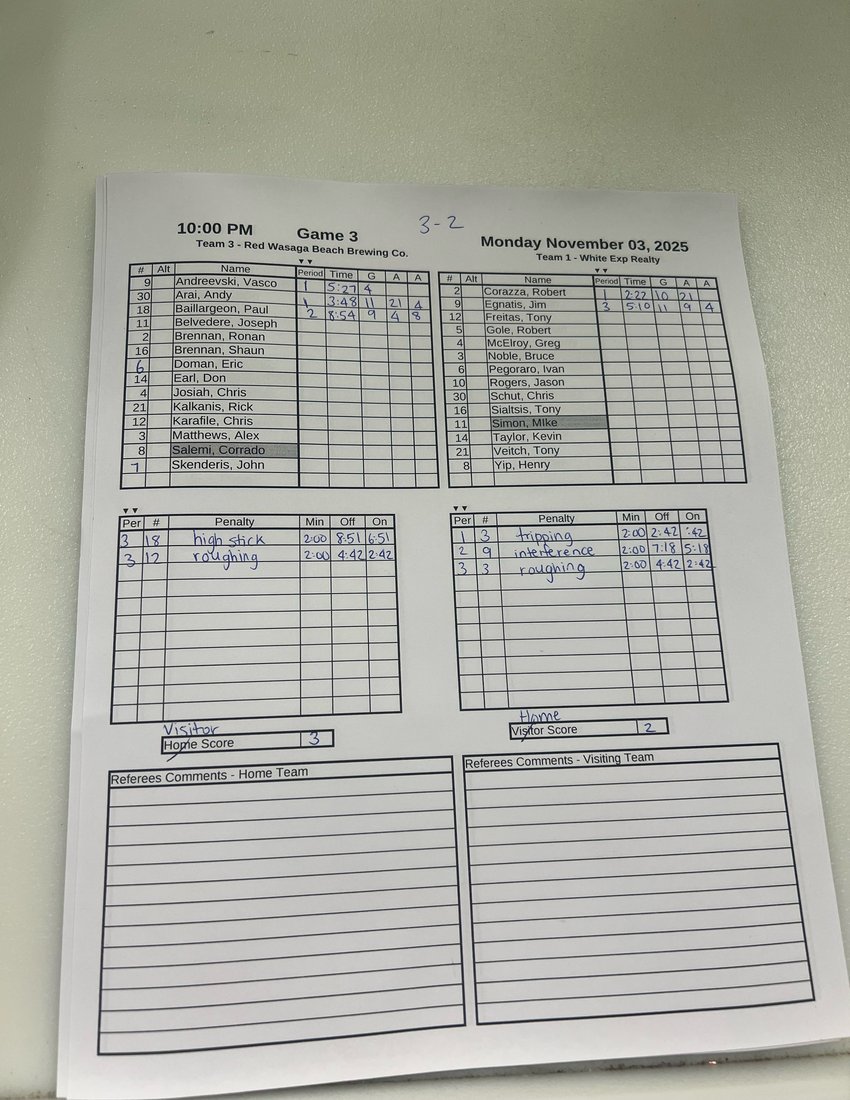 3-2
10:00 PM Game 3
Team 3 - Red Wasaga Beach Brewing Co.
# Alt Name Period Time G A A
9 Andreevski, Vasco 1 5:27 4
30 Arai, Andy 1 3:48 11 21 4
18 Baillargeon, Paul 2 8:54 9 4 8
11 Belvedere, Joseph
2 Brennan, Ronan
16 Brennan, Shaun
6 Doman, Eric
14 Earl, Don
4 Josiah, Chris
21 Kalkanis, Rick
12 Karafile, Chris
3 Matthews, Alex
8 Salemi, Corrado
7 Skenderis, John
Monday November 03, 2025
Team 1 - White Exp Realty
# Alt Name Period Time G A A
2 Corazza, Robert 1 2:22 10 21
9 Egnatis, Jim 3 5:10 11 9 4
12 Freitas, Tony
5 Gole, Robert
4 McElroy, Greg
3 Noble, Bruce
6 Pegoraro, Ivan
10 Rogers, Jason
30 Schut, Chris
16 Sialtsis, Tony
11 Simon, MIke
14 Taylor, Kevin
21 Veitch, Tony
8 Yip, Henry
Per # Penalty Min Off On
3 18 high stick 2:00 8:51 6:51
3 12 roughing 2:00 4:42 2:42
Per # Penalty Min Off On
1 3 tripping 2:00 2:42 :42
2 9 interference 2:00 7:18 5:18
3 3 roughing 2:00 4:42 2:42
Visitor
Home Score 3
Home
Visitor Score 2
Referees Comments - Home Team
Referees Comments - Visiting Team